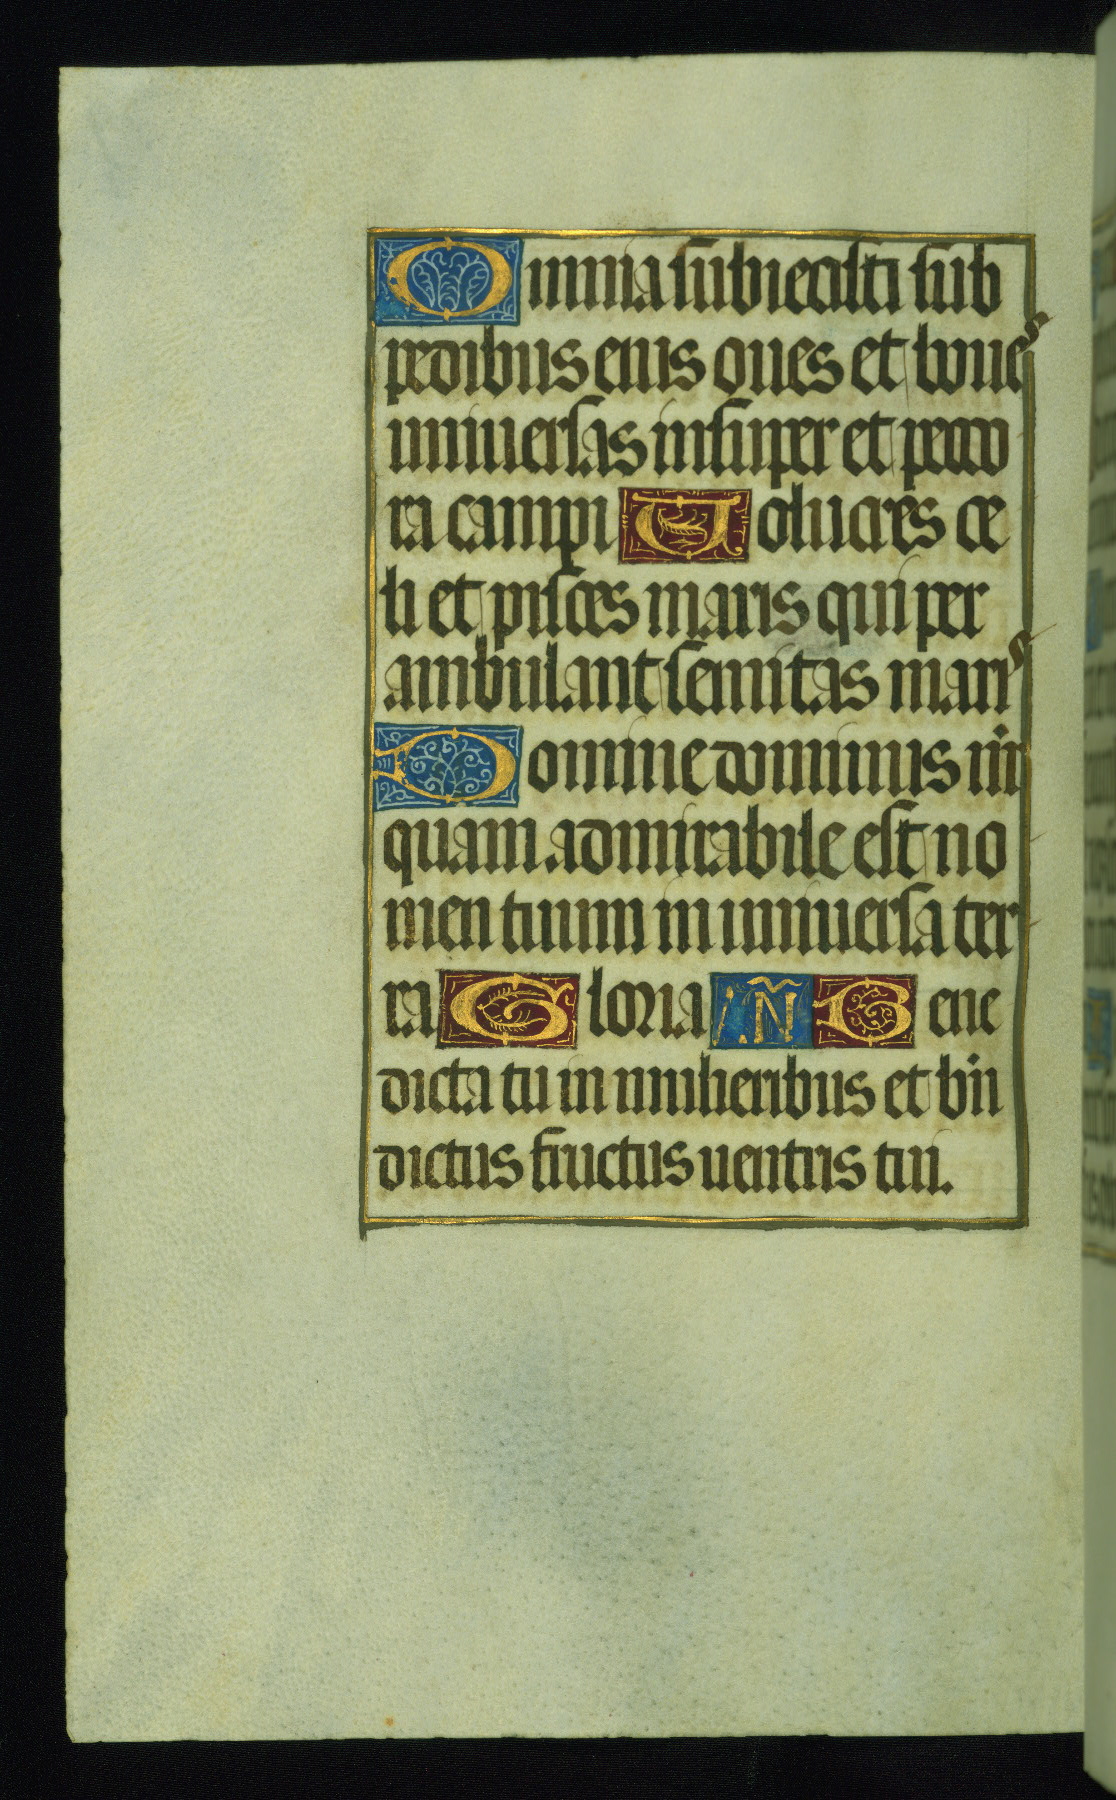 Omnia subiecisti sub
pedibus eius oues et boues
uniuersas insuper et peco
ra campi Uolucres ce
li et pisces maris qui per
ambulant semitas maris
Domine dominus nr̄
quam admirabile est no
men tuum in uniuersa ter
ra Gloria .añ Bene
dicta tu in mulieribus et bn̄
dictus fructus uentris tui.